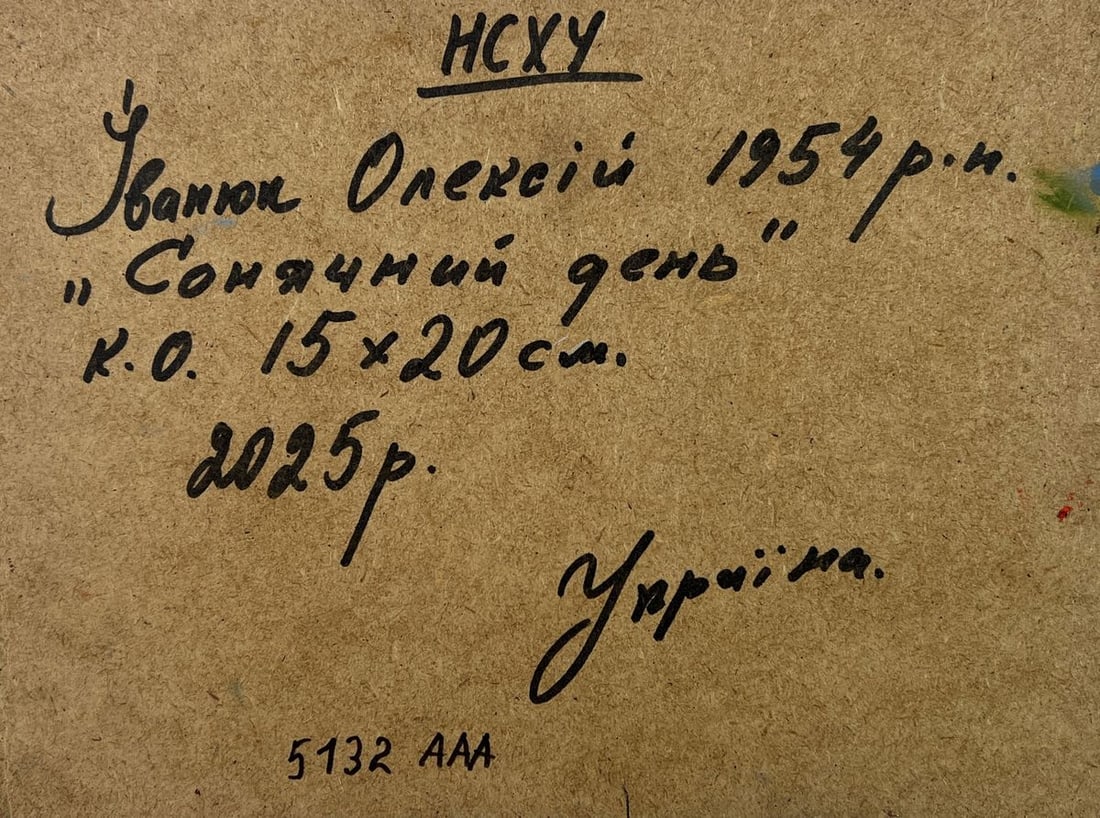 НСХУ
Іванюк Олексій 1954 р.н.
„Сонячний день"
к.о. 15×20 см.
2025р.
Україна.
5132 ААА